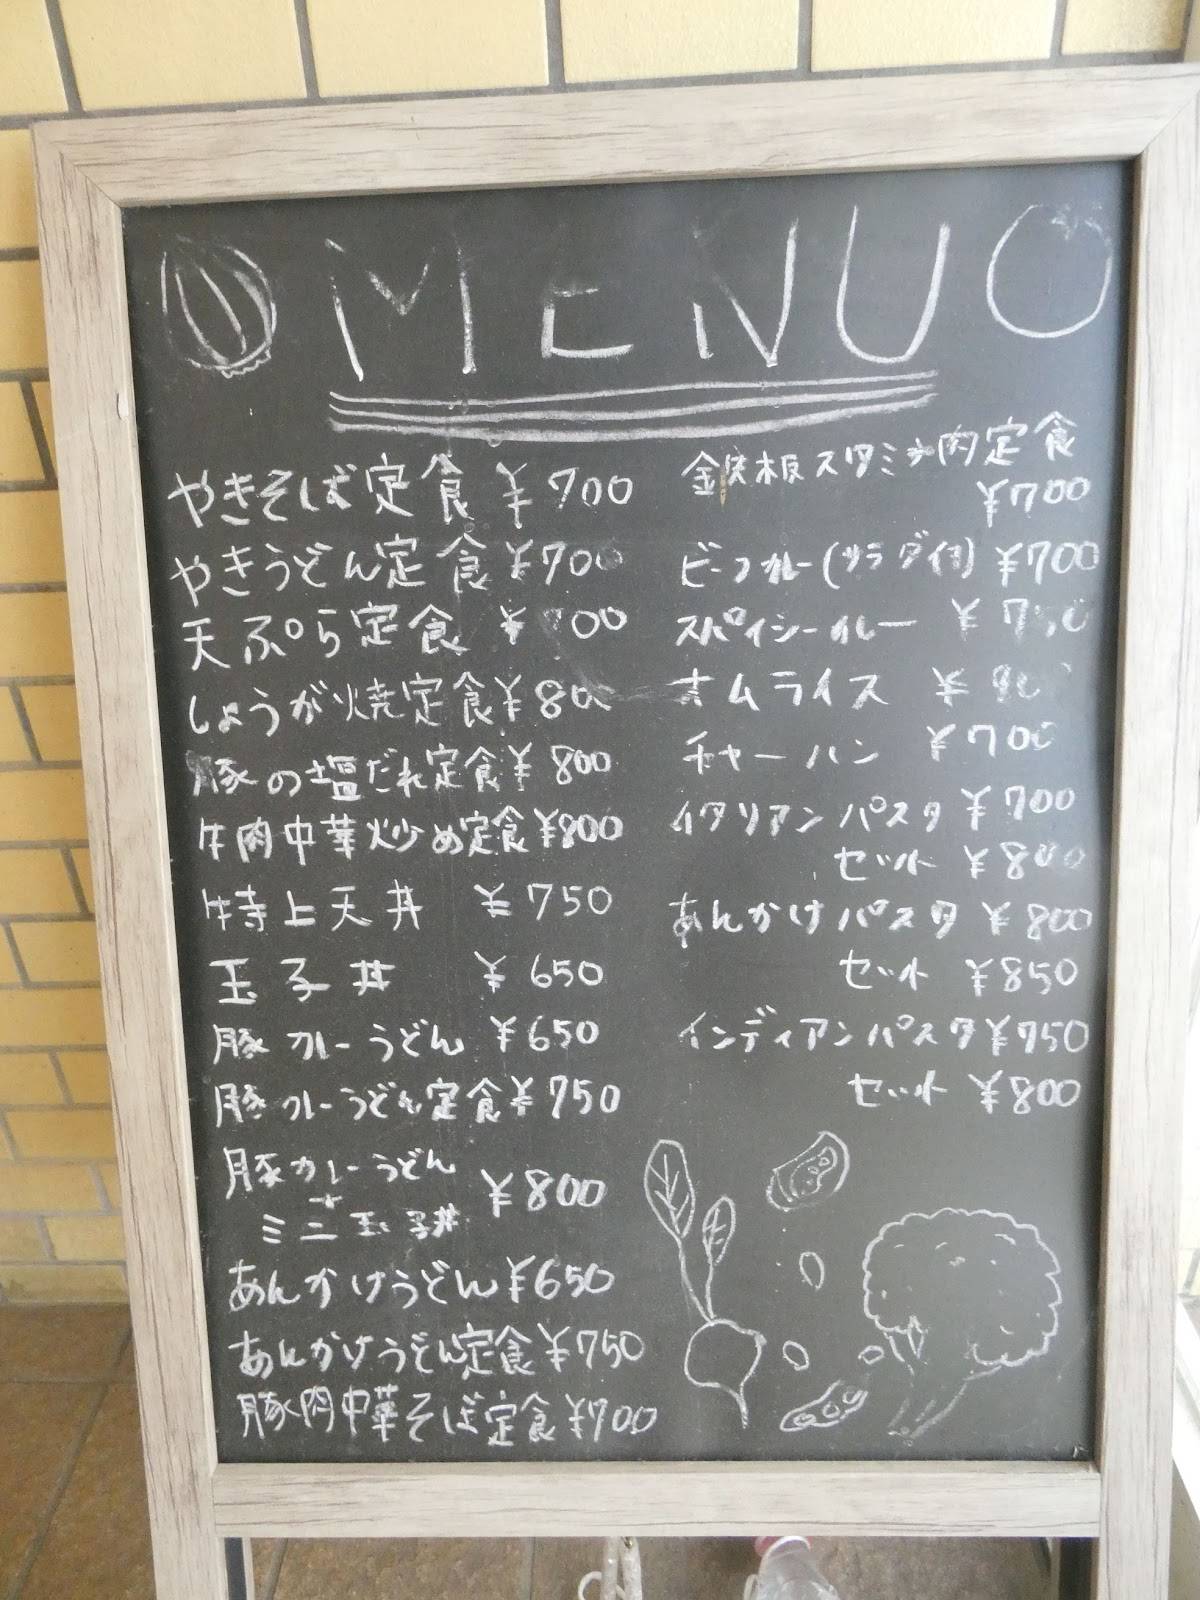 MENU
やきそば定食 ¥700
やきうどん定食 ¥700
天ぷら定食 ¥
しょうが焼定食 ¥800
豚の塩だれ定食 ¥800
牛肉中華炒め定食 ¥800
特上天丼 ¥750
玉子丼 ¥650
豚カレーうどん ¥650
豚カレーうどん定食 ¥750
豚カレーうどん
+
ミニ玉子丼 ¥800
あんかけうどん ¥650
あんかけうどん定食 ¥750
豚肉中華そば定食 ¥700
鉄板スタミナ肉定食
¥700
ビーフカレー(サラダ付) ¥700
スパイシーカレー ¥750
オムライス ¥
チャーハン ¥700
イタリアンパスタ ¥700
セット ¥800
あんかけパスタ ¥800
セット ¥850
インディアンパスタ ¥750
セット ¥800